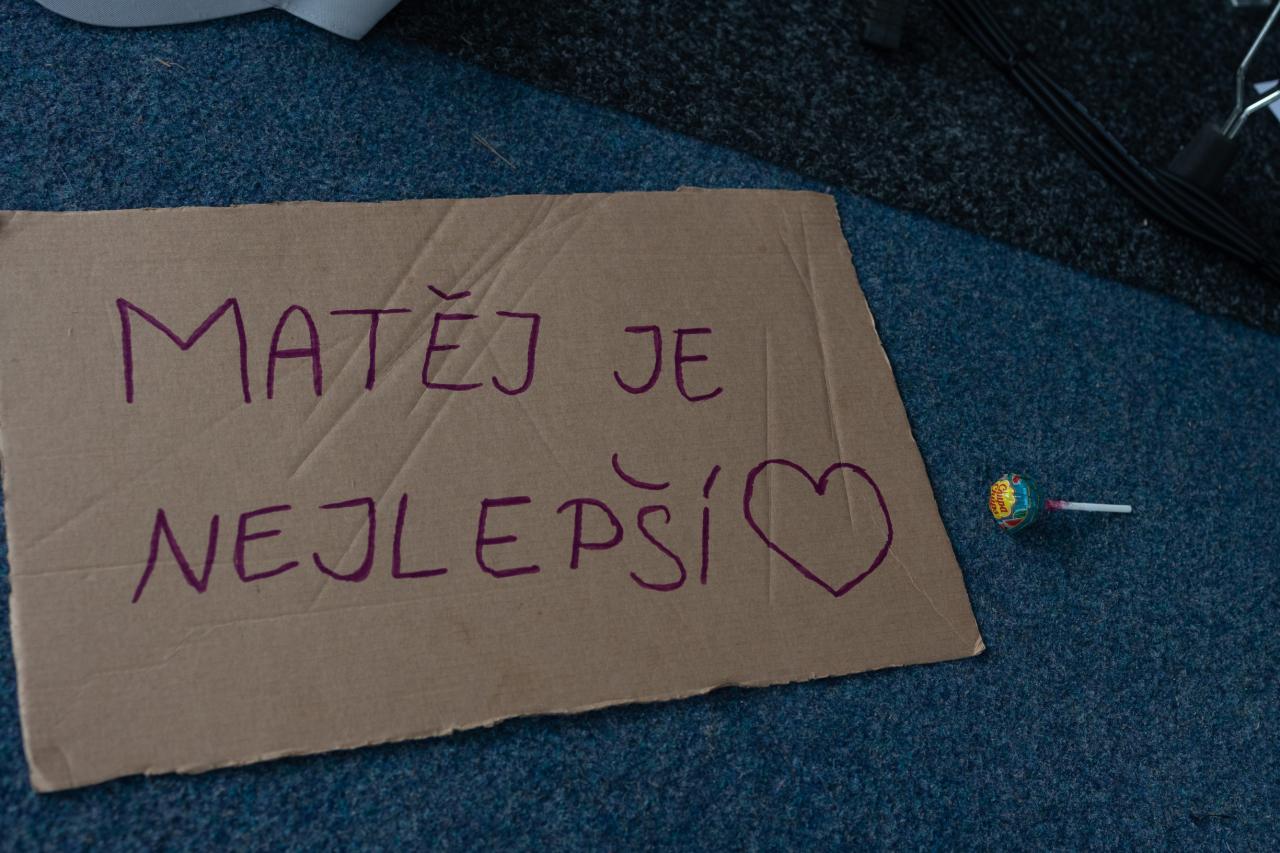 MATĚJ JE
NEJLEPŠÍ♡
Chupa
Chups